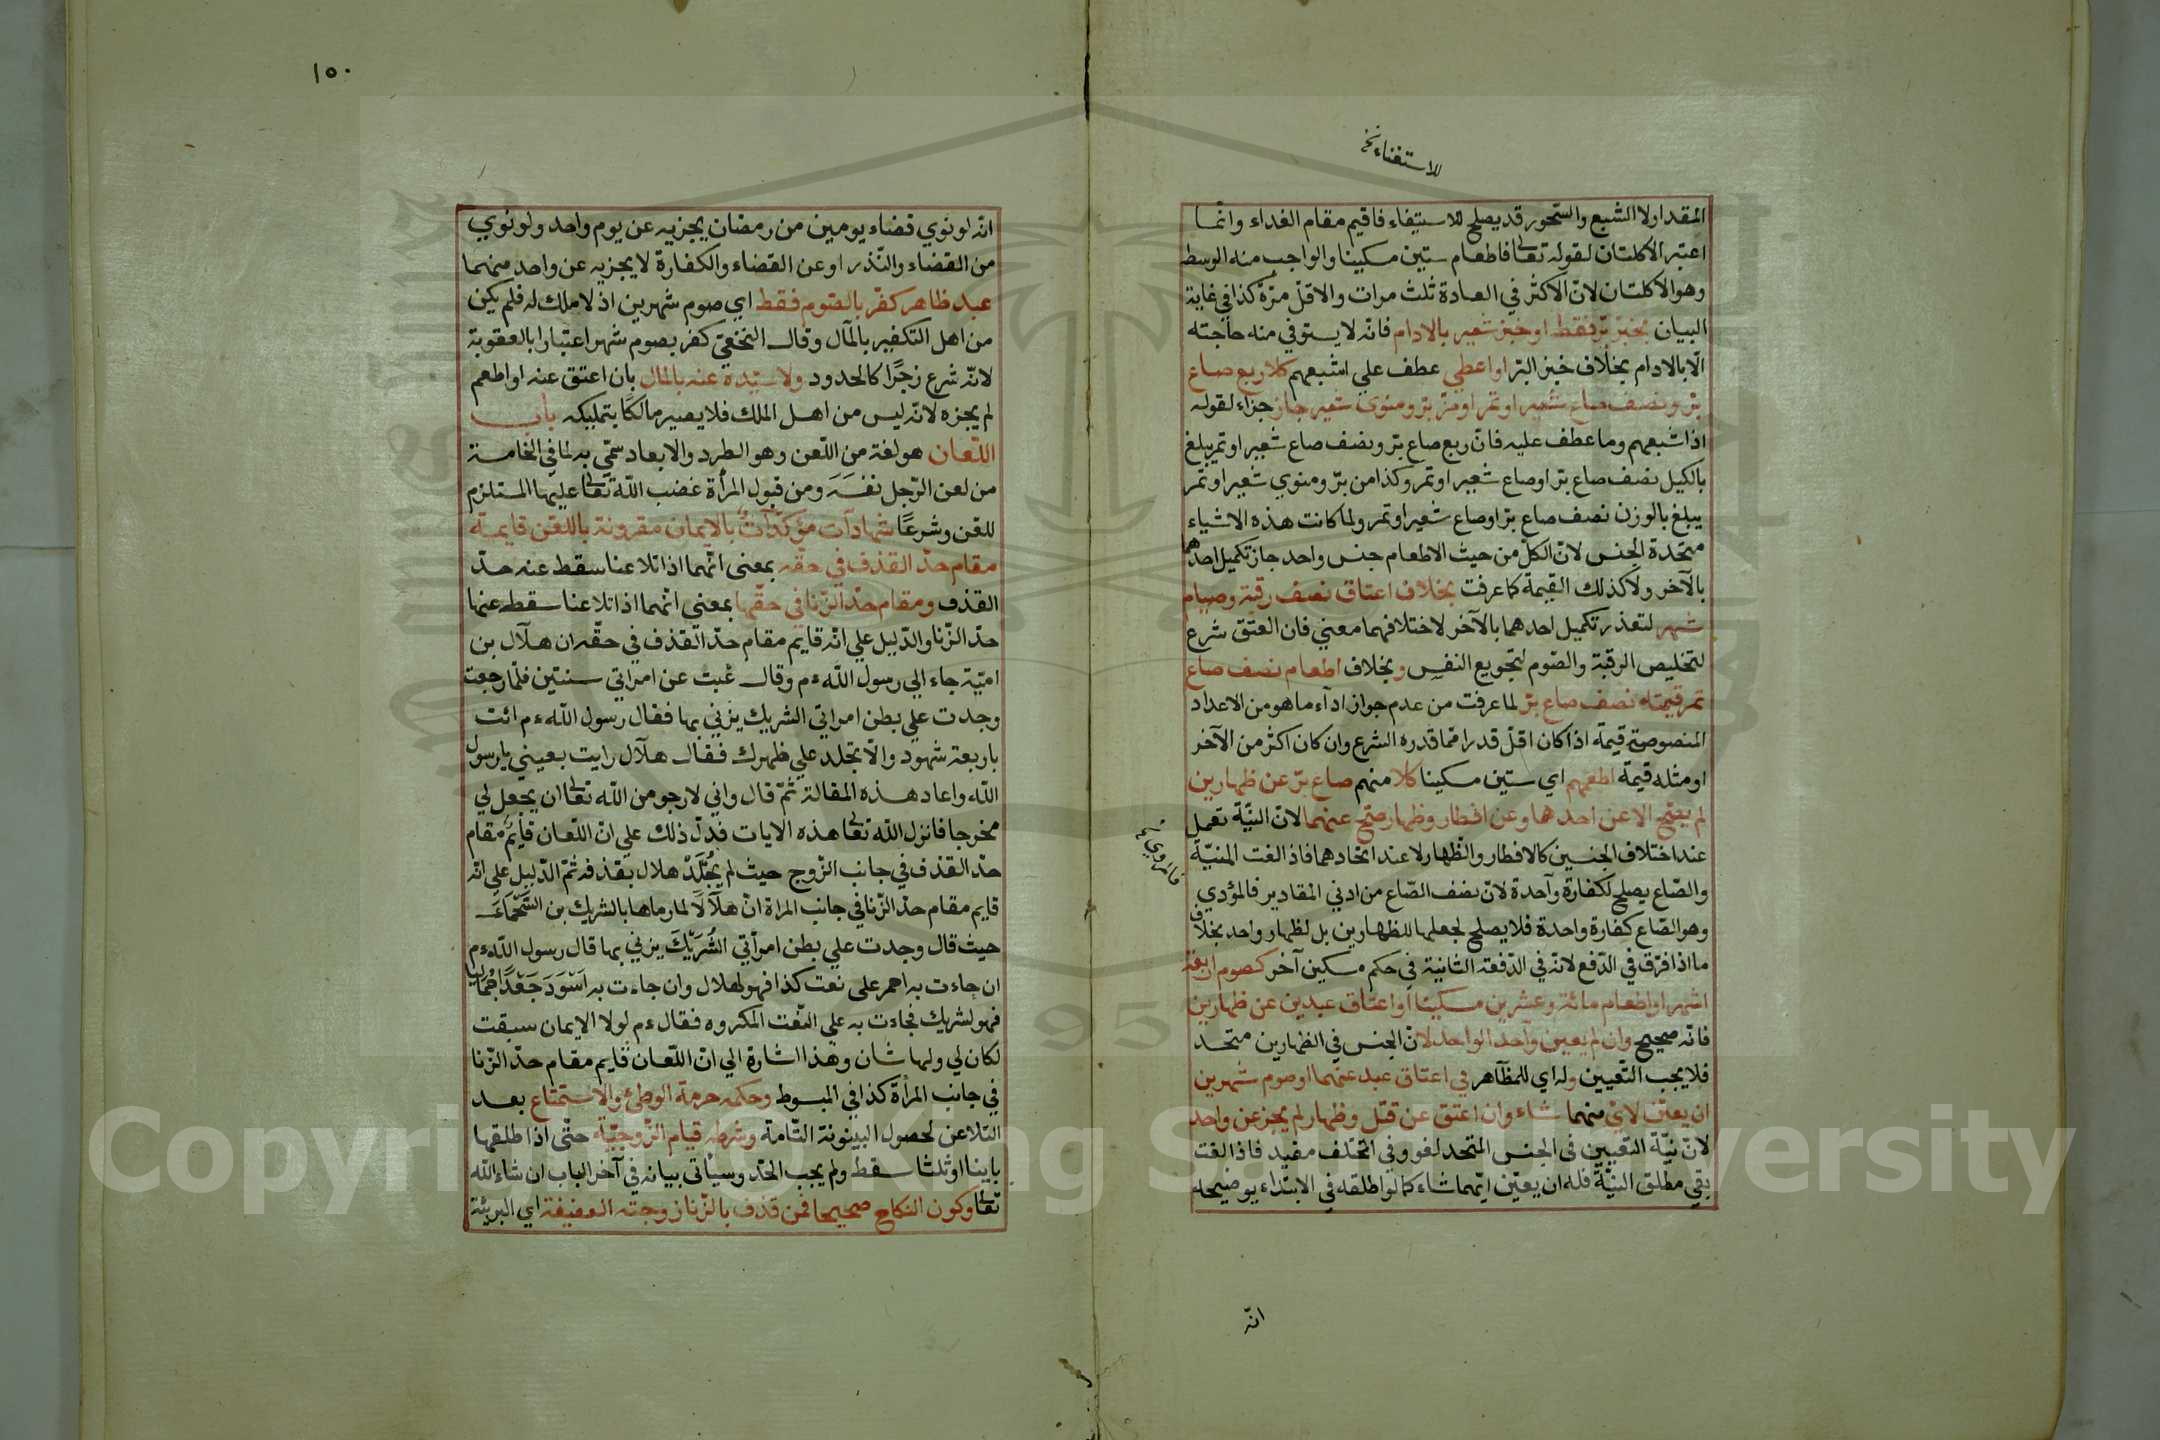 للاستغناء نخ
المقدار لا الشبع والسّحور قد يصلح للاستيفاء فاقيم مقام الغداء وانّما
اعتبر الاكلتان لقوله تعالى فاطعام ستين مسكينا والواجب منه الوسط
وهو الاكلتان لانّ الاكثر في العادة ثلث مرات والاقلّ مرّة كذا في غاية
البيان بخبز برّ فقط او خبز شعير بالادام فانّه لا يستوفي منه حاجته
الّا بالادام بخلاف خبز البرّ او اعطي عطف علي اشبعهم كلا ربع صاع
برّ ونصف صاع شعير او تمر او منّ برّ ومنوي شعير جاز جزاء لقوله
اذا اشبعهم وما عطف عليه فانّ ربع صاع برّ ونصف صاع شعير او تمر يبلغ
بالكيل نصف صاع برّ او صاع شعير او تمر وكذا من برّ ومنوي شعير او تمر
يبلغ بالوزن نصف صاع برّ او صاع شعير او تمر ولما كانت هذه الاشياء
متحدة الجنس لانّ الكلّ من حيث الاطعام جنس واحد جاز تكميل احدهما
بالآخر ولا كذلك القيمة كما عرفت بخلاف اعتاق نصف رقبة وصيام
شهر لتعذر تكميل احدهما بالآخر لاختلافهما معني فان العتق شرع
لتخليص الرقبة والصّوم لتجويع النفس وبخلاف اطعام نصف صاع
تمر قيمته نصف صاع برّ لما عرفت من عدم جواز اداء ما هو من الاعداد
المنصوصة قيمة اذا كان اقلّ قدرا ممّا قدره الشرع وان كان اكثر من الآخر
او مثله قيمة اطعمهم اي ستين مسكينا كلا منهم صاع برّ عن ظهارين
لم يصحّ الا عن احدهما وعن افطار وظهار صحّ عنهما لانّ النيّة تعمل
عند اختلاف الجنسين كالافطار والظهار لا عند اتحادهما فاذا لغت المنيّة
والصّاع يصلح لكفارة واحدة لانّ نصف الصّاع من ادني المقادير فالمؤدي
وهو الصّاع كفارة واحدة فلا يصلح لجعلها للظهارين بل لظهار واحد بخلاف
ما اذا فرّق في الدّفع لانّه في الدّفعة الثانية في حكم مسكين آخر كصوم اربعة
اشهر او اطعام مائة وعشرين مسكينا او اعتاق عبدين عن ظهارين
فانّه صحيح وان لم يعين واحدا لواحد لانّ الجنس في الظهارين متحد
فلا يجب التّعيين وله اي للمظاهر في اعتاق عبد عنهما او صوم شهرين
ان يعيّن لايّ منهما شاء وان اعتق عن قتل وظهار لم يجز عن واحد
لانّ نيّة التّعيين في الجنس المتحد لغو وفي المختلف مفيد فاذا لغت
بقي مطلق النيّة فله ان يعيّن ايّهما شاء كما لو اطلقه في الابتداء يوضيحه
انّه
١٥٠
انّه لو نوي قضاء يومين من رمضان يجزيه عن يوم واحد ولو نوي
من القضاء والنّذر او عن القضاء والكفارة لا يجزيه عن واحد منهما
عبد ظاهر كفّر بالصّوم فقط اي صوم شهرين اذ لا ملك له فلم يكن
من اهل التكفير بالمال وقال النخعيّ كفر بصوم شهر اعتبارا بالعقوبة
لانّه شرع زجرًا كالحدود ولا سيّده عنه بالمال بان اعتق عنه او اطعم
لم يجزه لانّه ليس من اهل الملك فلا يصير مالكًا بتمليكه باب
اللّعان هو لغة من اللّعن وهو الطرد والابعاد سمّي به لما في الخامسة
من لعن الرّجل نفسه ومن قبول المرأة غضب اللّه تعالى عليها المستلزم
للعن وشرعًا شهادات مؤكّدات بالايمان مقرونة باللعن قايمة
مقام حدّ القذف في حقّه بمعنى انّهما اذا تلاعنا سقط عنه حدّ
القذف ومقام حدّ الزّنا في حقّها بمعني انّهما اذا تلاعنا سقط عنها
حدّ الزّنا والدّليل علي انّه قايم مقام حدّ القذف في حقّه ان هلال بن
اميّة جاء الي رسول اللّه ءم وقال غبت عن امراتي سنتين فلمّا رجعت
وجدت علي بطن امراتي الشريك يزني بها فقال رسول اللّه ءم ائت
باربعة شهود والّا تجلد علي ظهرك فقال هلال رايت بعيني يا رسول
اللّه واعاد هذه المقالة ثمّ قال واني لارجو من اللّه تعالى ان يجعل لي
مخرجا فانزل اللّه تعالى هذه الايات فدلّ ذلك علي انّ اللّعان قايم مقام
حدّ القذف في جانب الزّوج حيث لم يُجلد هلال بقذفه ثمّ الدّليل علي انّه
قايم مقام حدّ الزّنا في جانب المراة انّ هلالًا لما رماها بالشريك بن السّحماء
حيث قال وجدت علي بطن امرأتي الشريك يزني بها قال رسول اللّه ءم
ان جاءت به احمر على نعت كذا فهو لهلال وان جاءت به اسود جعدًا جماليا
فهو لشريك فجاءت به علي النّعت المكروه فقال ءم لولا الايمان سبقت
لكان لي ولها شان وهذا اشارة الي انّ اللّعان قايم مقام حدّ الزّنا
في جانب المرأة كذا في المبسوط وحكمه حرمة الوطئ والاستمتاع بعد
التلاعن لحصول البينونة التّامة وشرطه قيام الزّوجيّة حتّى اذا طلقها
باينا او ثلثا سقط ولم يجب الحدّ وسيأتى بيانه في آخر الباب ان شاء اللّه
تعالى وكون النكاح صحيحا فمن قذف بالزّنا زوجته العفيفة اي البريئة
Copyright © King Saud University